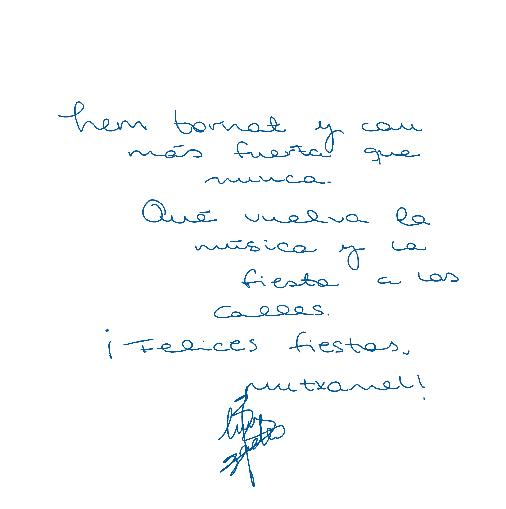 hem tornat y con
más fuerza que
nunca.
Qué vuelva la
música y la
fiesta a las
calles.
¡Felices fiestas,
mutxamel!